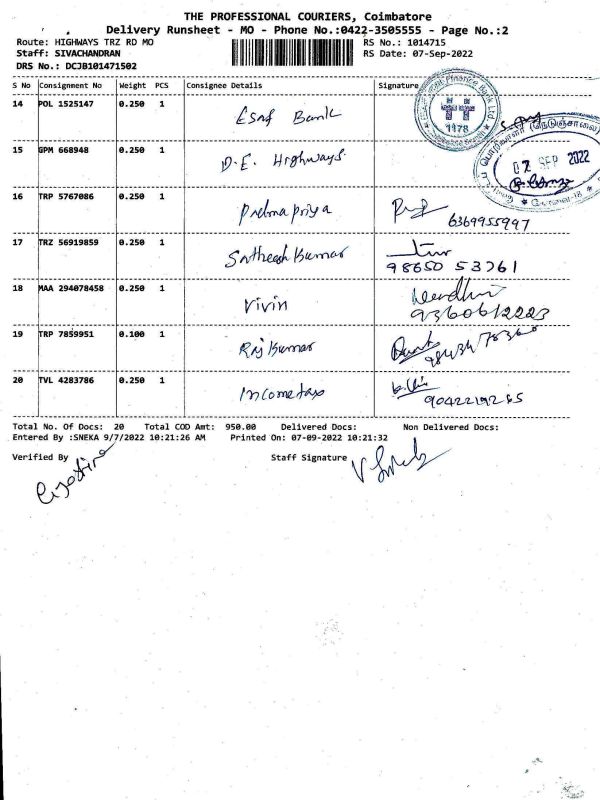 THE PROFESSIONAL COURIERS, Coimbatore
Delivery Runsheet - MO - Phone No.:0422-3505555 - Page No.:2
Route: HIGHWAYS TRZ RD MO RS No.: 1014715
Staff: SIVACHANDRAN RS Date: 07-Sep-2022
DRS No.: DCJB101471502
S No Consignment No Weight PCS Consignee Details Signature
14 POL 1525147 0.250 1 Esaf Bank
15 GPM 668948 0.250 1 D.E. Highways
07 SEP 2022
16 TRP 5767086 0.250 1 Padmapriya
6369955997
17 TRZ 56919859 0.250 1 Satheesh Kumar
98650 53761
18 MAA 294078458 0.250 1 Vivin
9360612223
19 TRP 7859951 0.100 1 Raj Kumar
20 TVL 4283786 0.250 1 Incometax
Total No. Of Docs: 20 Total COD Amt: 950.00 Delivered Docs: Non Delivered Docs:
Entered By :SNEKA 9/7/2022 10:21:26 AM Printed On: 07-09-2022 10:21:32
Verified By Staff Signature